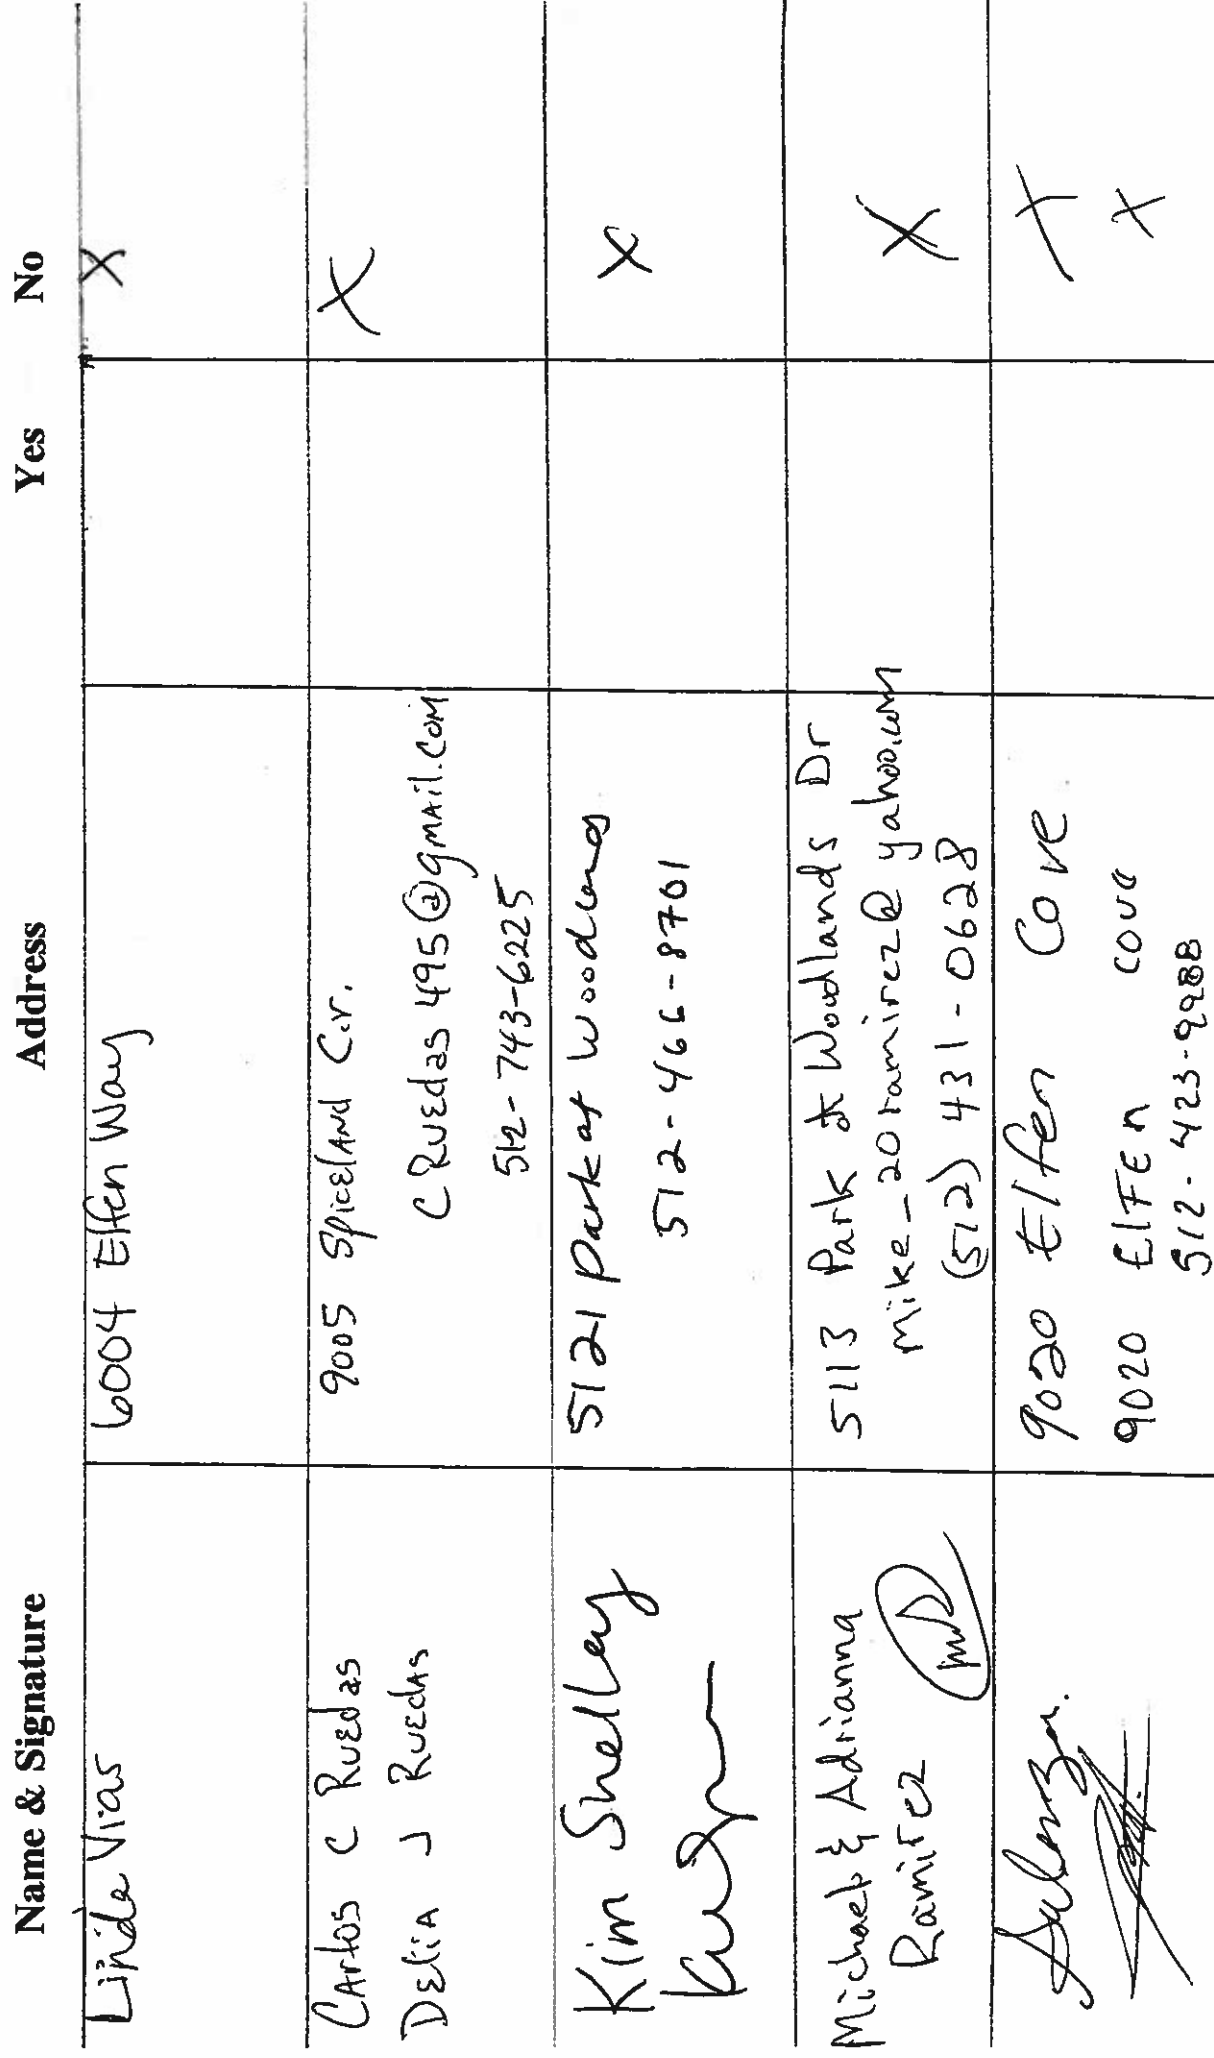 Name & Signature Address Yes No
Linda Vias 6004 Elfen Way X
CArlos C Ruedas 9005 SpicelAnd Cir. X
DEliA J RuedAs CRuedas495@gmail.com
512-743-6225
Kim Shelley 5121 Park at Woodland X
512-466-8701
Michael & Adrianna 5113 Park at Woodlands Dr X
Ramirez mike_20ramirez@yahoo.com
(512) 431-0628
9020 Elfen Cove X
9020 ElFEn COVE X
512-423-9288